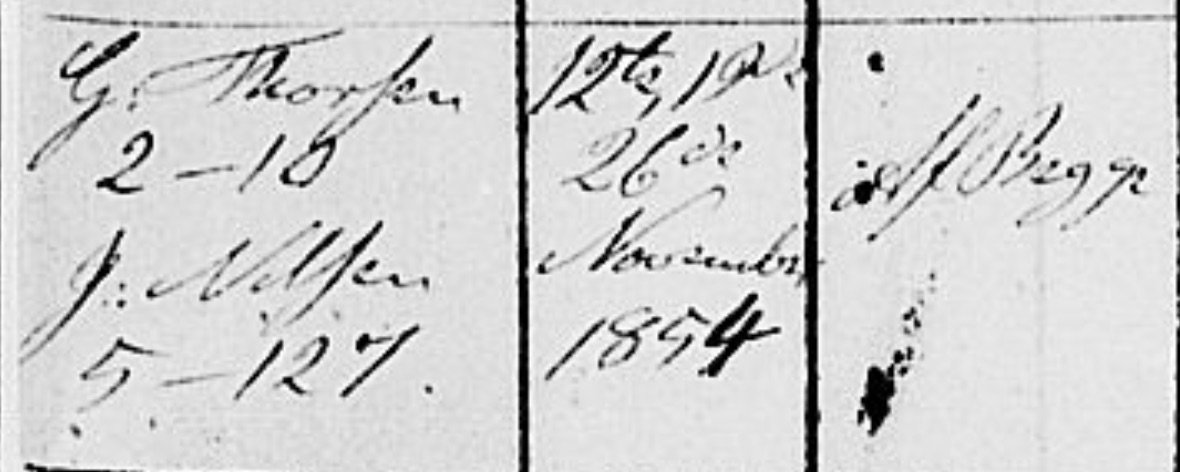 G. Thorsen
2 – 10
J: Nilsen
5 – 127.
12te, 19de
26de
November
1854
af Begge